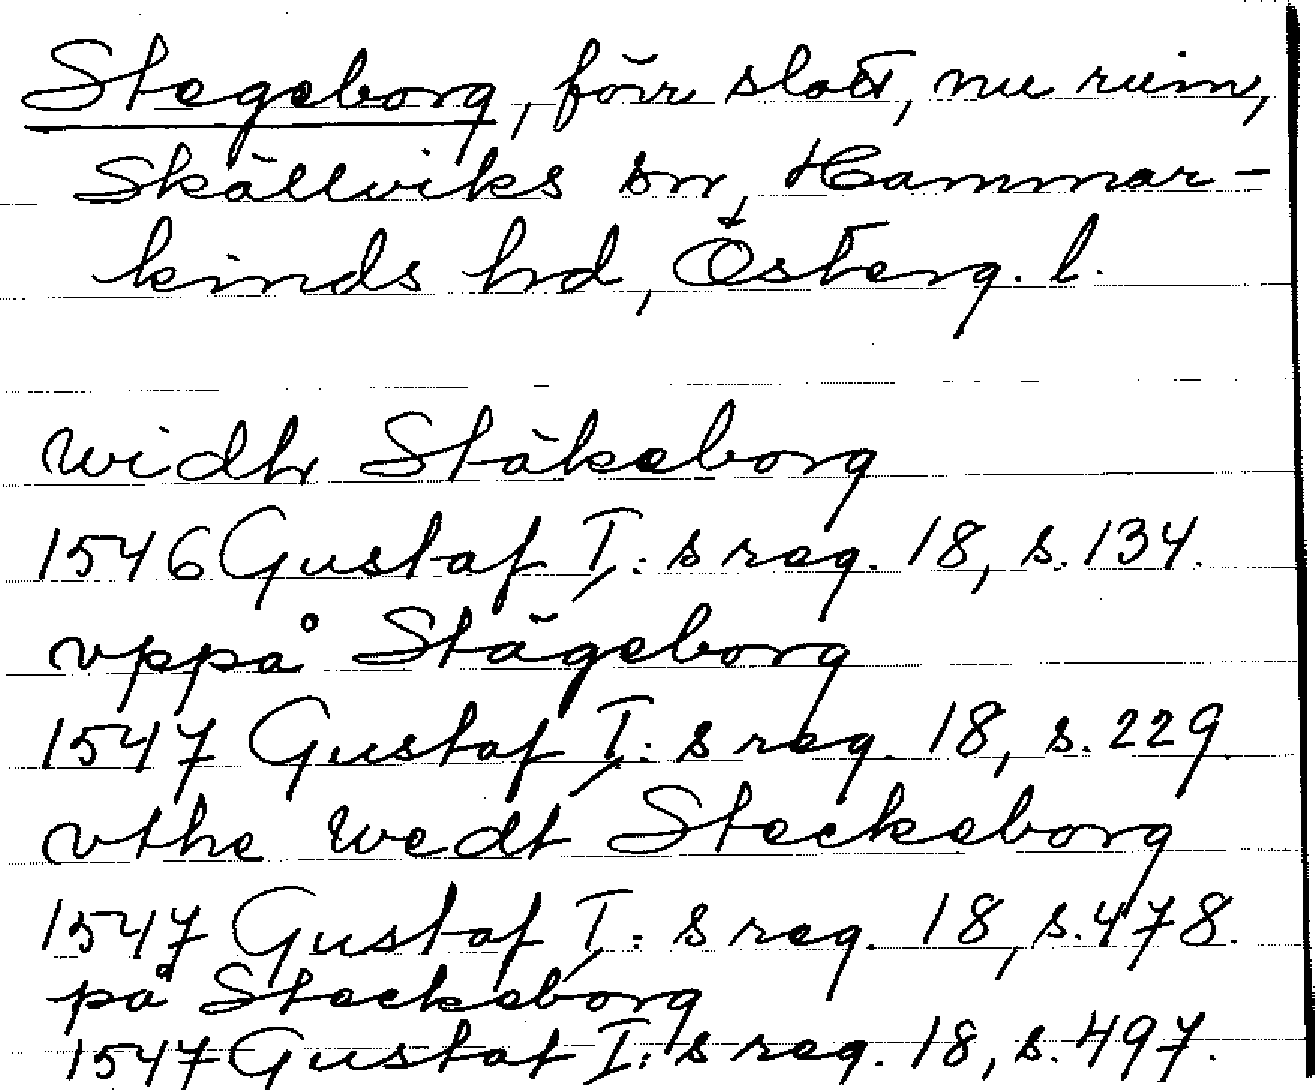 Stegeborg, förr slott, nu ruin,
Skällviks sn, Hammar-
kinds hrd, Österg. l.
widh Stäkeborg
1546 Gustaf I:s reg. 18, s. 134.
vppå Stägeborg
1547 Gustaf I:s reg. 18, s. 229.
vthe wedt Steckeborg
1547 Gustaf I:s reg. 18, s. 478.
på Steckeborg
1547 Gustaf I:s reg. 18, s. 497.